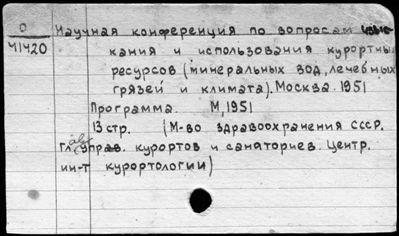 О
41420
Научная конференция по вопросам изыс-
кания и использования курортных
ресурсов (минеральных вод, лечебных
грязей и климата). Москва. 1951
Программа. М, 1951
13 стр. (М-во здравоохранения СССР.
Гл. управ. курортов и санаториев. Центр.
ин-т курортологии)